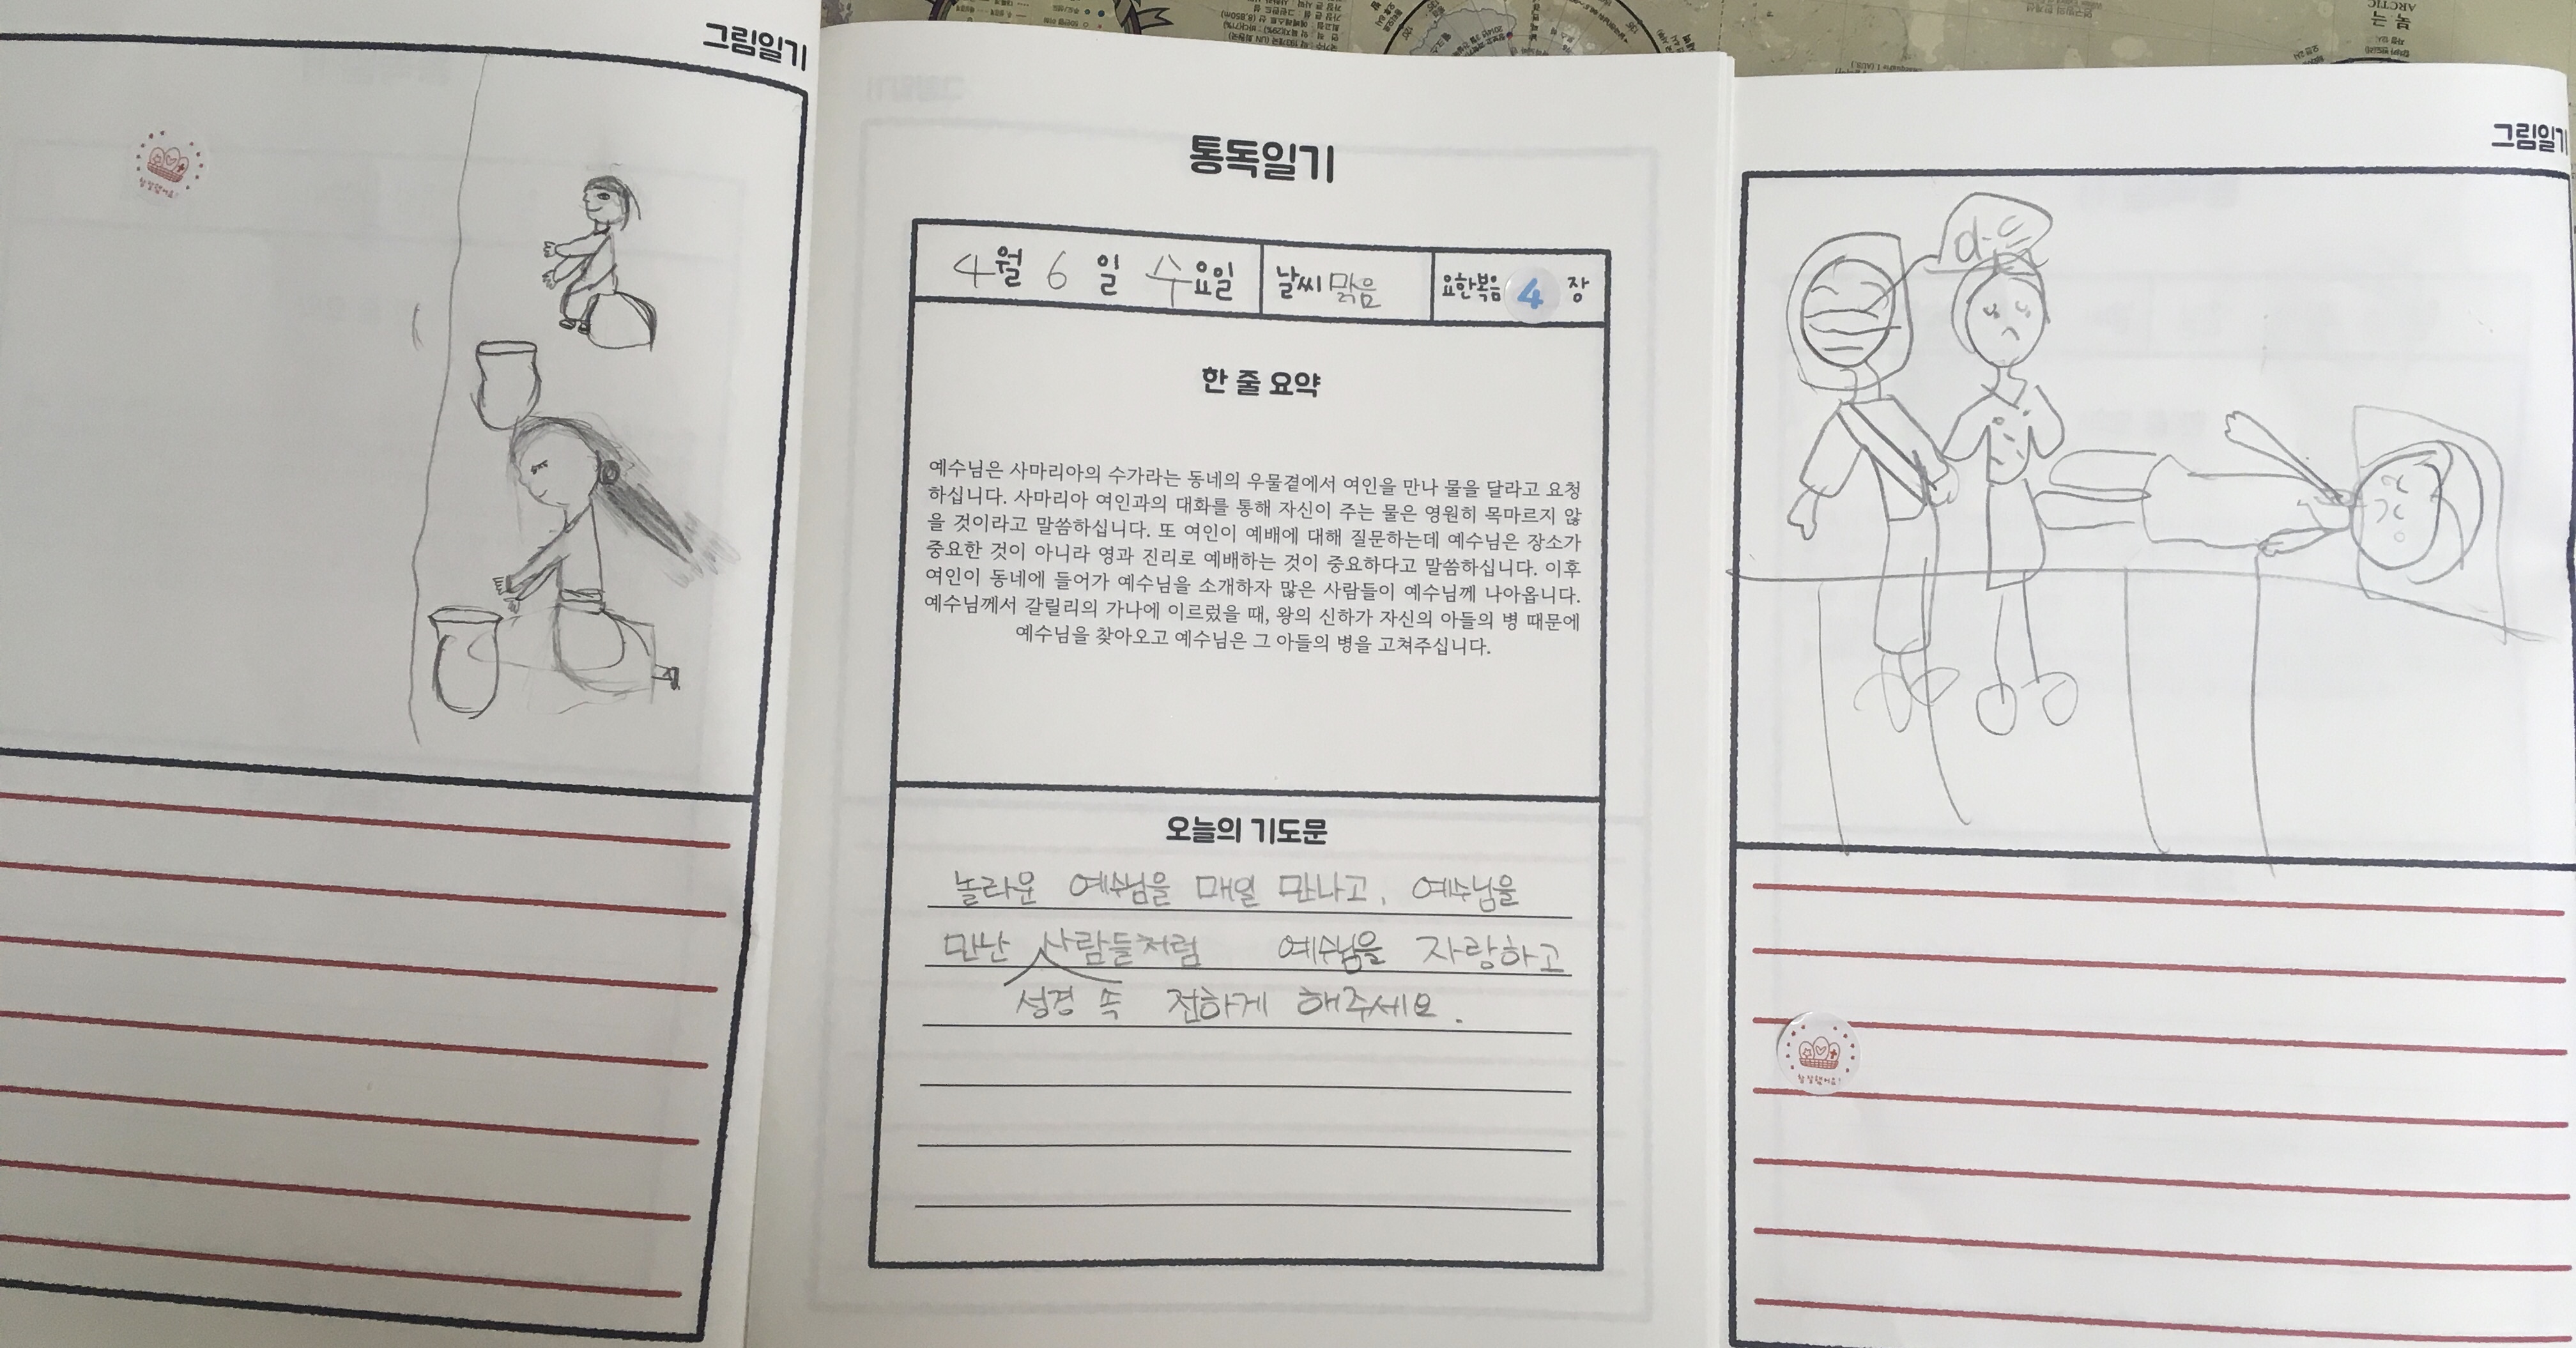 그림일기
참 잘했어요!
통독일기
4월 6일 수요일 날씨 맑음 요한복음 4 장
한 줄 요약
예수님은 사마리아의 수가라는 동네의 우물곁에서 여인을 만나 물을 달라고 요청
하십니다. 사마리아 여인과의 대화를 통해 자신이 주는 물은 영원히 목마르지 않
을 것이라고 말씀하십니다. 또 여인이 예배에 대해 질문하는데 예수님은 장소가
중요한 것이 아니라 영과 진리로 예배하는 것이 중요하다고 말씀하십니다. 이후
여인이 동네에 들어가 예수님을 소개하자 많은 사람들이 예수님께 나아옵니다.
예수님께서 갈릴리의 가나에 이르렀을 때, 왕의 신하가 자신의 아들의 병 때문에
예수님을 찾아오고 예수님은 그 아들의 병을 고쳐주십니다.
오늘의 기도문
놀라운 예수님을 매일 만나고, 예수님을
만난 사람들처럼 예수님을 자랑하고
성경 속 전하게 해주세요.
그림일기
참 잘했어요!
ARCTIC